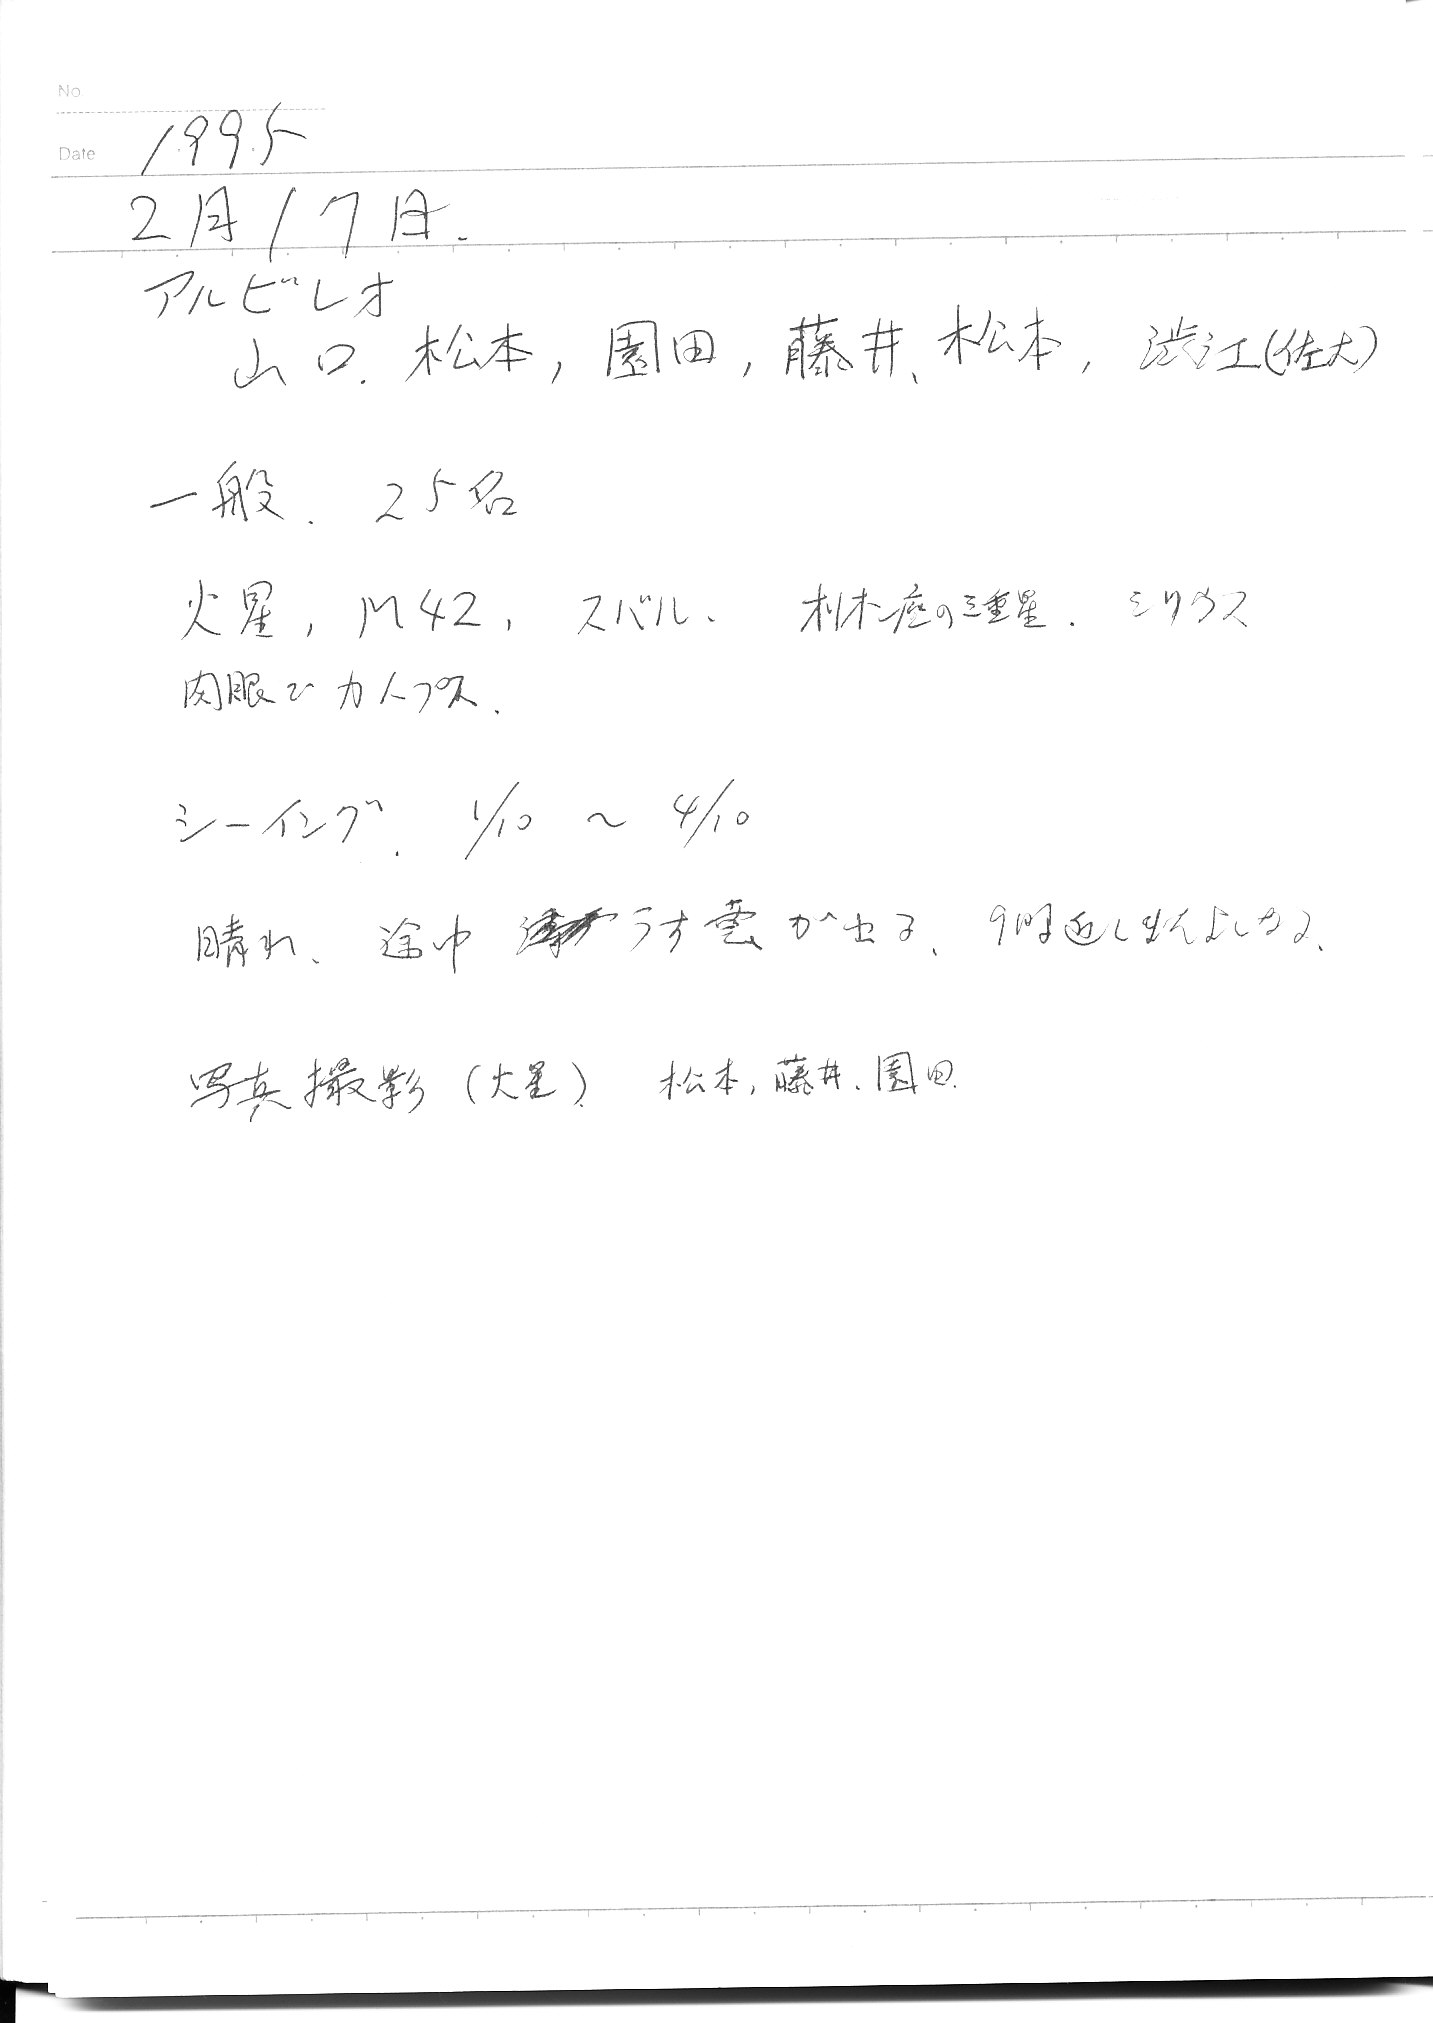 No
Date 1995
2月17日.
アルビレオ
山口. 松本, 園田, 藤井、松本, 渋江(佐大)
一般. 25名
火星, M42, スバル、オリオン座の三重星. シリウス
肉眼で カノープス.
シーイング. 1/10 ~ 4/10
晴れ、途中 うす雲が出る、9時近く
写真撮影(火星). 松本, 藤井、園田.